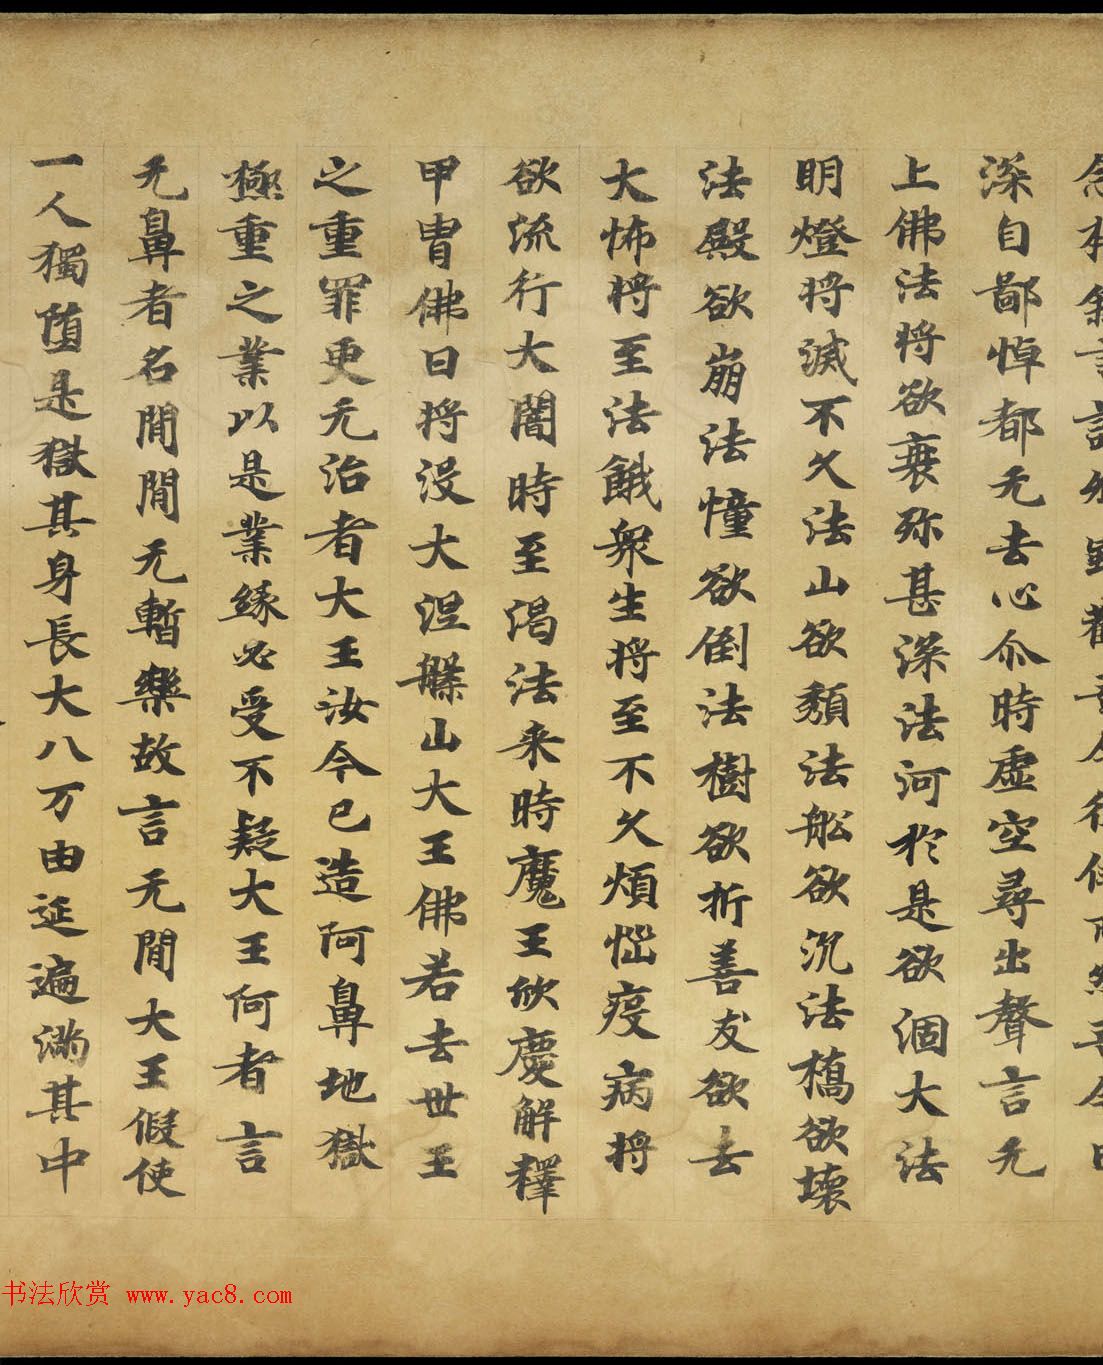 深自鄙悼都无去心尒時虛空尋出聲言无
上佛法將欲衰殄甚深法河於是欲涸大法
明燈將滅不久法山欲頹法舩欲沉法橋欲壞
法殿欲崩法憧欲倒法樹欲折善友欲去
大怖將至法餓衆生將至不久煩惱疫病將
欲流行大闇時至渴法来時魔王欣慶解釋
甲冑佛日將没大涅槃山大王佛若去世王
之重罪更无治者大王汝今已造阿鼻地獄
極重之業以是業緣必受不疑大王何者言
无鼻者名閒閒无暫樂故言无閒大王假使
一人獨堕是獄其身長大八万由延遍滿其中
书法欣赏 www.yac8.com